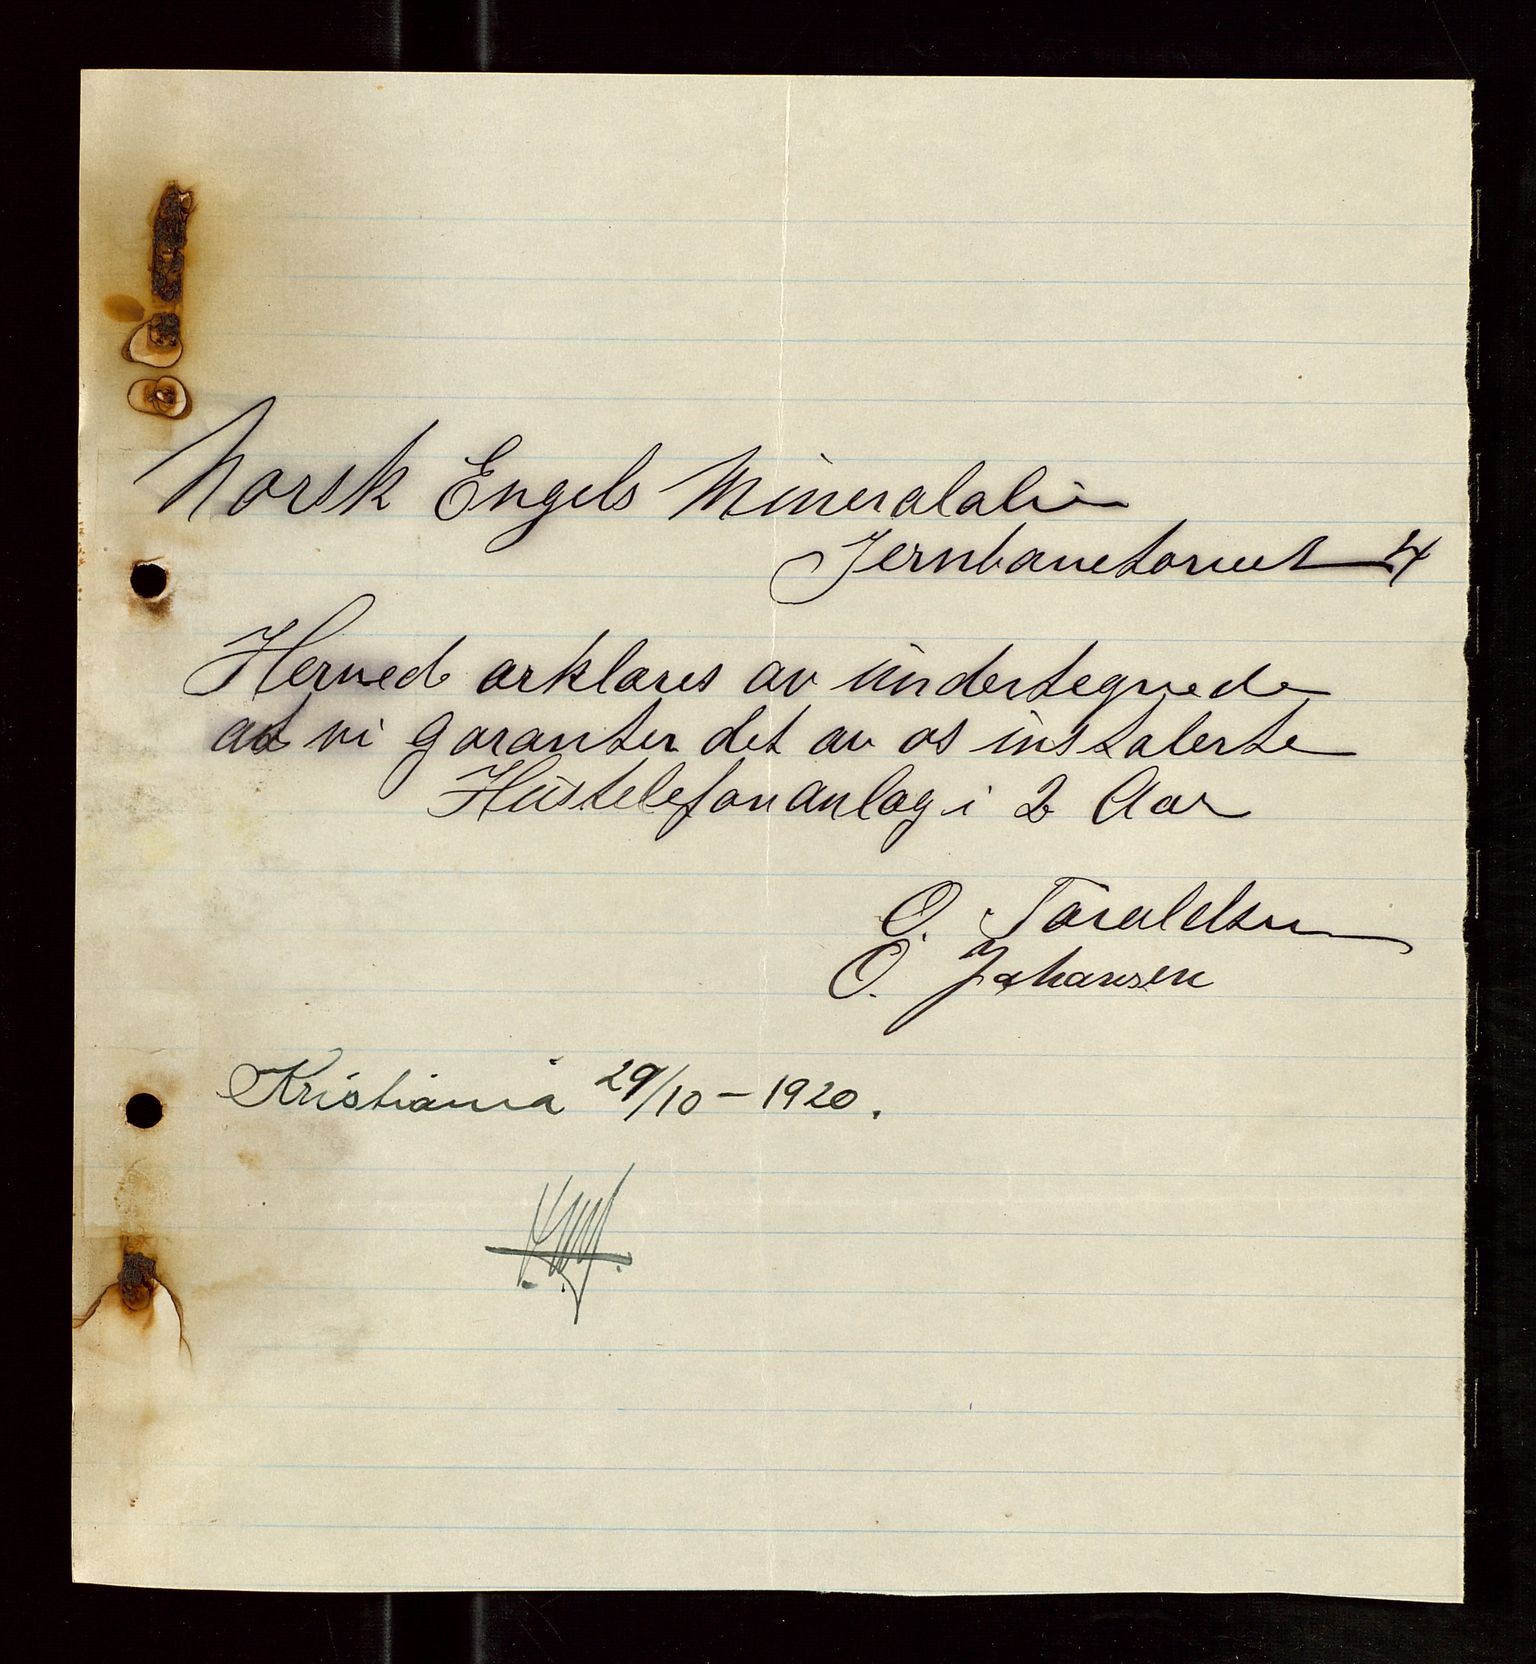 Norsk Engels Mineralolie
Jernbanetorvet 4
Herved erklares av undertegnede
at vi garanter det av os instalerte
Hustelefonanlag i 2 Aar
O. Taraldsen
O. Johansen
Kristiania 29/10-1920.